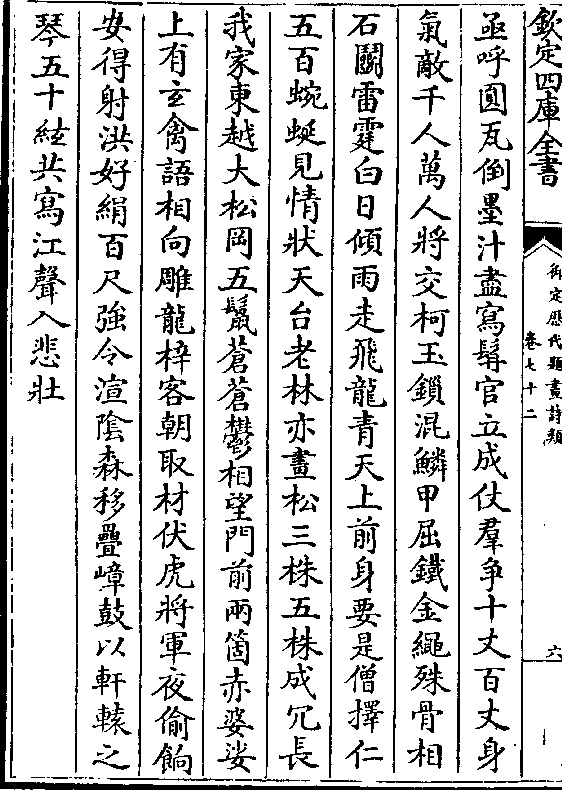 欽定四庫全書
御定歷代題畫詩類
卷七十二
六
亟呼圓瓦倒墨汁盡寫髯官立成仗羣爭十丈百丈身
氣敵千人萬人將交柯玉鎖混鱗甲屈鐵金繩殊骨相
石鬬雷霆白日傾雨走飛龍青天上前身要是僧擇仁
五百蜿蜒見情狀天台老林亦畫松三株五株成冗長
我家東越大松岡五鬛蒼蒼鬱相望門前兩箇赤婆娑
上有玄禽語相向雕龍梓客朝取材伏虎將軍夜偷餉
安得射洪好絹百尺強令渲陰森移疊嶂鼓以軒轅之
琴五十絃共寫江聲入悲壯